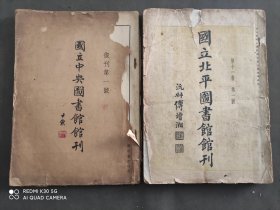 國立中央圖書館館刊
復刊第一號
國立北平圖書館館刊
第十一卷 第一號
沅叔傅增湘
REDMI K30 5G
AI QUAD CAMERA